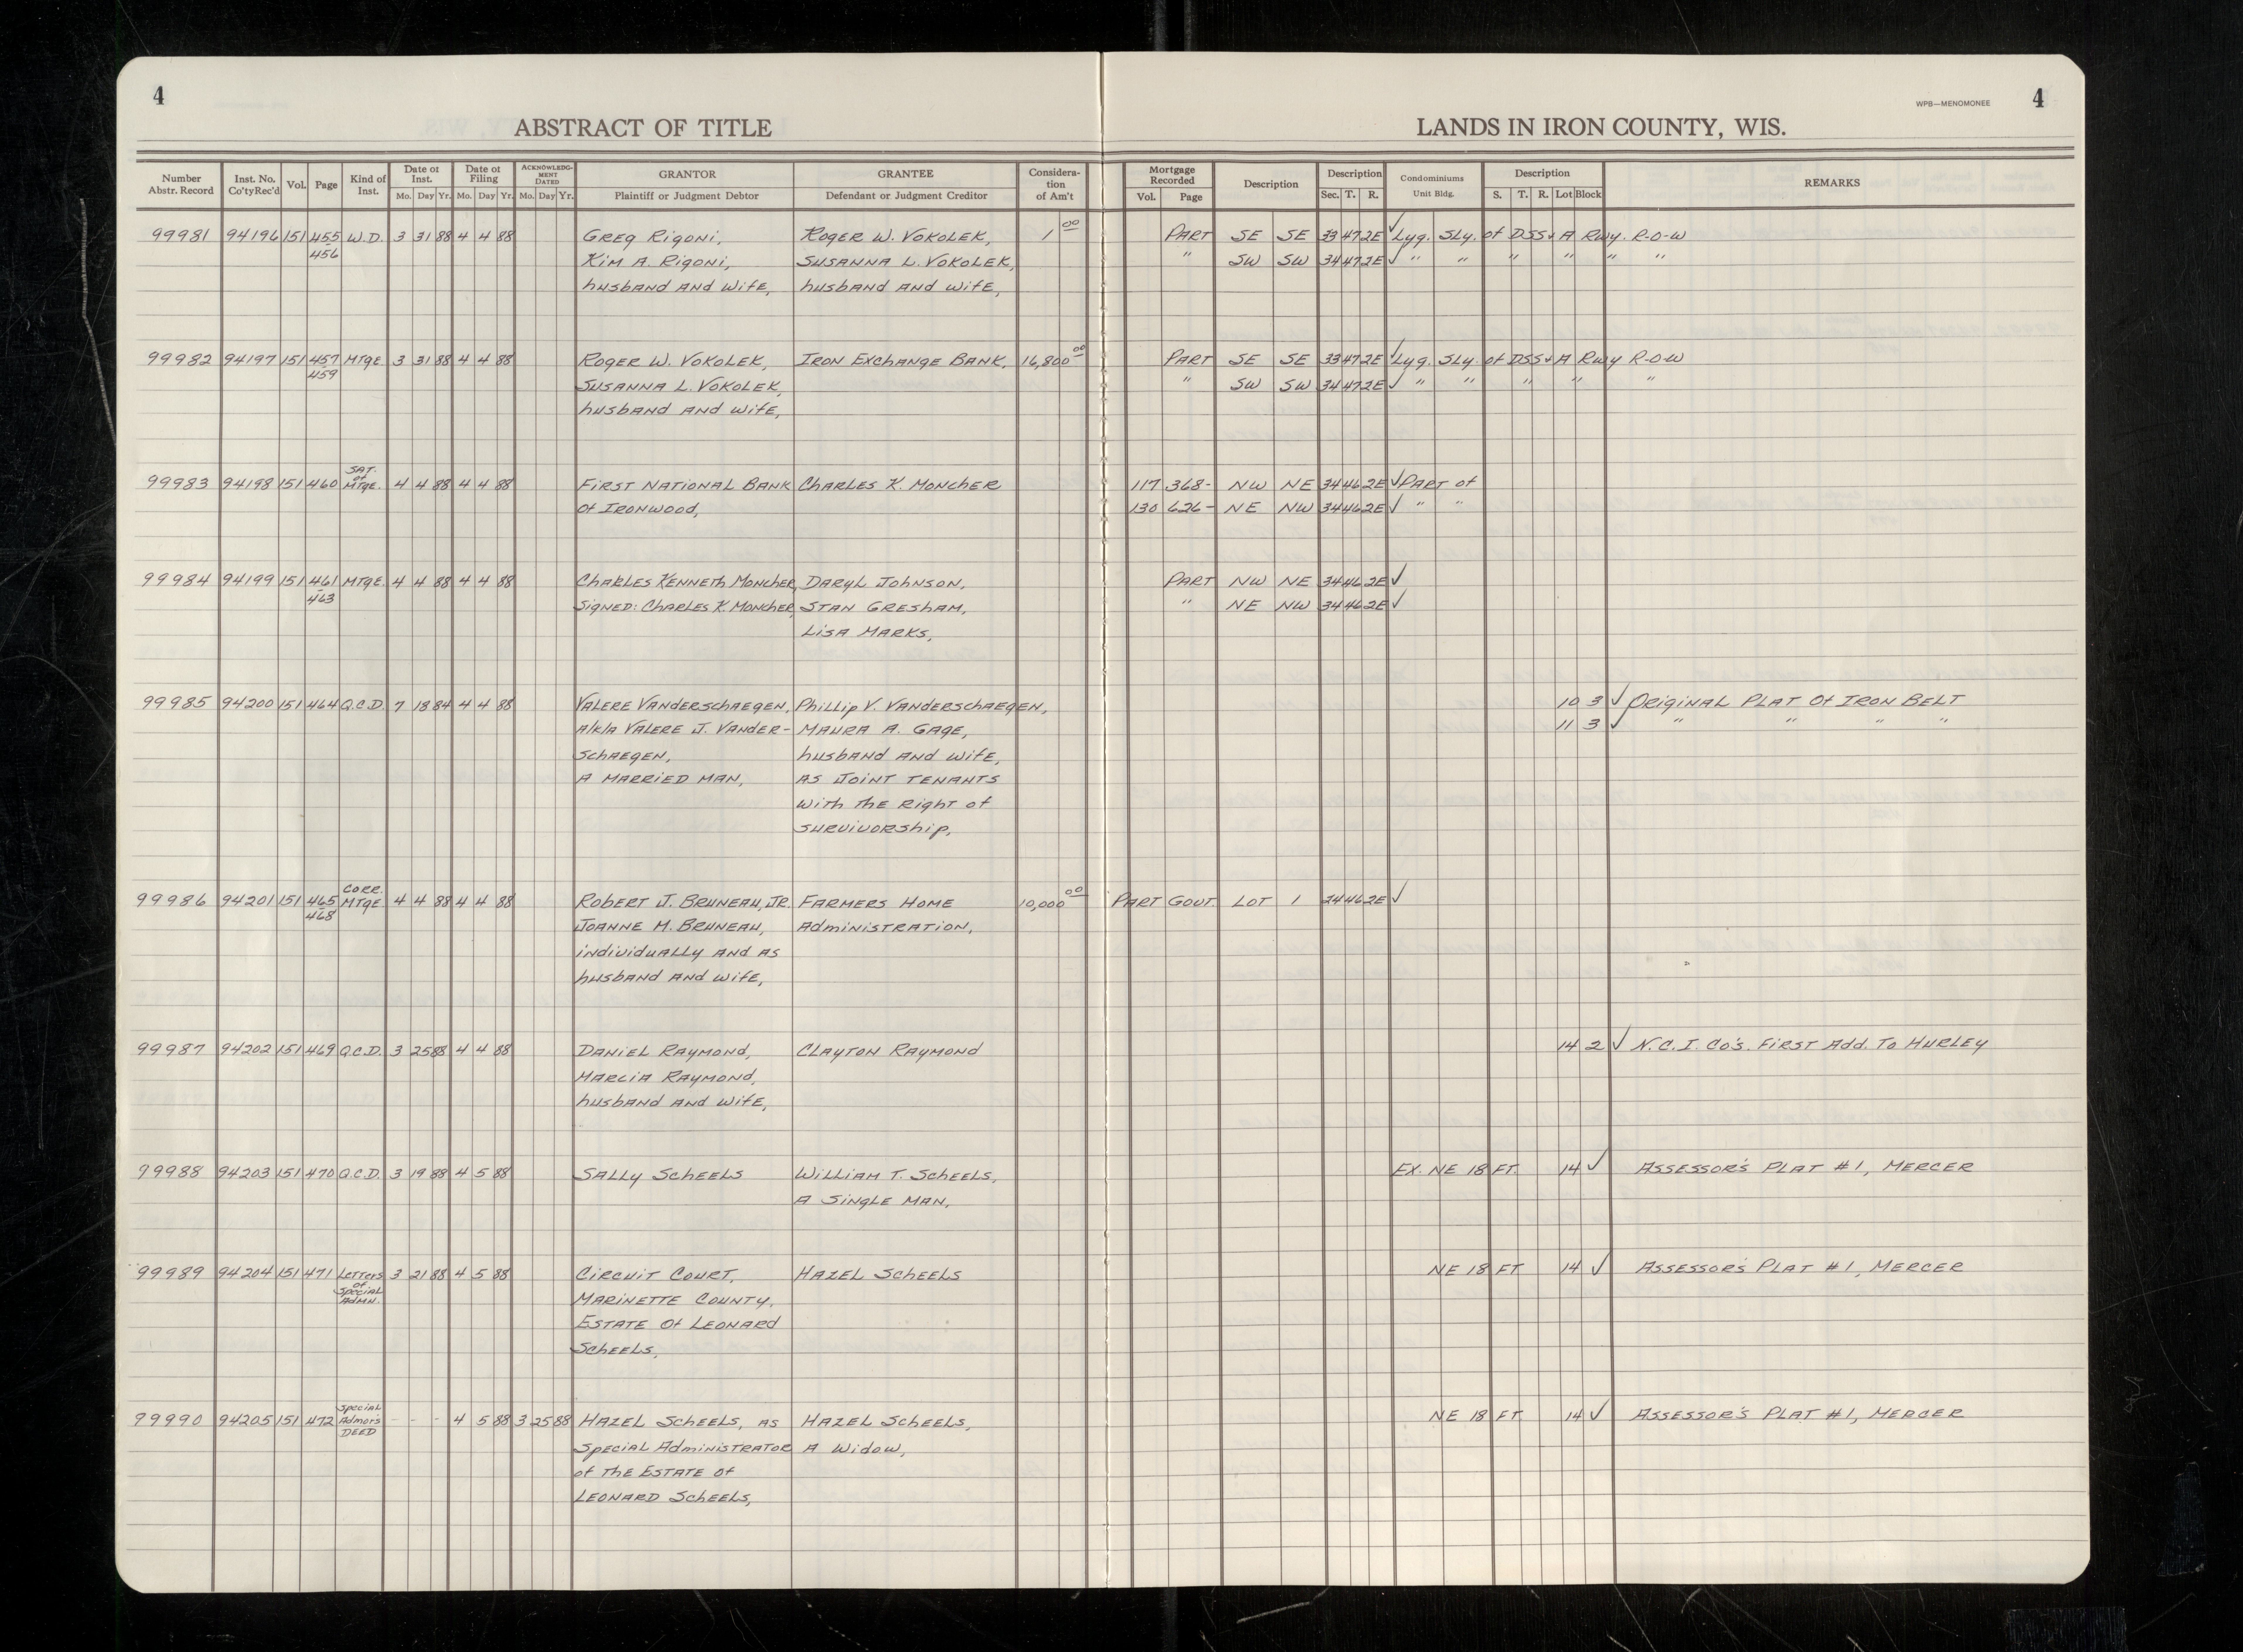 4
ABSTRACT OF TITLE
LANDS IN IRON COUNTY, WIS.
WPB—MENOMONEE 4
Number Abstr. Record Inst. No. Co'ty Rec'd Vol. Page Kind of Inst. Date of Inst. Mo. Day Yr. Date of Filing Mo. Day Yr. ACKNOWLEDGMENT DATED Mo. Day Yr. GRANTOR Plaintiff or Judgment Debtor GRANTEE Defendant or Judgment Creditor Consideration of Am't Mortgage Recorded Vol. Page Description Description Sec. T. R. Condominiums Unit Bldg. Description S. T. R. Lot Block REMARKS
99981 94196 151 455 W.D. 3 31 88 4 4 88 Greg Rigoni, Roger W. Vokolek, 1 00 Part SE SE 33 47 2E ✓ Lyg. Sly. of DSS+A Rwy. R-O-W
456 Kim A. Rigoni, Susanna L. Vokolek, " SW SW 34 47 2E ✓ " " " " " "
husband and wife, husband and wife,
99982 94197 151 457 Mtge. 3 31 88 4 4 88 Roger W. Vokolek, Iron Exchange Bank, 16,800 00 Part SE SE 33 47 2E ✓ Lyg. Sly. of DSS+A Rwy R-O-W
459 Susanna L. Vokolek, " SW SW 34 47 2E ✓ " " " " "
husband and wife,
99983 94198 151 460 Sat. of Mtge. 4 4 88 4 4 88 First National Bank Charles K. Moncher 117 368- NW NE 34 46 2E ✓ Part of
of Ironwood, 130 626- NE NW 34 46 2E ✓ " "
99984 94199 151 461 Mtge. 4 4 88 4 4 88 Charles Kenneth Moncher, Daryl Johnson, Part NW NE 34 46 2E ✓
463 Signed: Charles K. Moncher, Stan Gresham, " NE NW 34 46 2E ✓
Lisa Marks,
99985 94200 151 464 Q.C.D. 7 18 84 4 4 88 Valere Vanderschaegen, Phillip V. Vanderschaegen, 10 3 ✓ Original Plat of Iron Belt
a/k/a Valere J. Vander- Maura A. Gage, 11 3 ✓ " " " "
schaegen, husband and wife,
a married man, as joint tenants
with the right of
survivorship,
99986 94201 151 465 Corr. Mtge 4 4 88 4 4 88 Robert J. Bruneau, Jr. Farmers Home 10,000 00 Part Govt. Lot 1 24 46 2E ✓
468 Joanne M. Bruneau, Administration,
individually and as
husband and wife,
99987 94202 151 469 Q.C.D. 3 25 88 4 4 88 Daniel Raymond, Clayton Raymond 14 2 ✓ N.C.I. Co's. First Add. To Hurley
Marcia Raymond,
husband and wife,
99988 94203 151 470 Q.C.D. 3 19 88 4 5 88 Sally Scheels William T. Scheels, Ex. NE 18 FT. 14 ✓ Assessor's Plat #1, Mercer
a single man,
99989 94204 151 471 Letters of Special Admn. 3 21 88 4 5 88 Circuit Court, Hazel Scheels NE 18 FT 14 ✓ Assessor's Plat #1, Mercer
Marinette County,
Estate of Leonard
Scheels,
99990 94205 151 472 Special Admors Deed - - - 4 5 88 3 25 88 Hazel Scheels, as Hazel Scheels, NE 18 FT 14 ✓ Assessor's Plat #1, Mercer
Special Administrator a widow,
of the Estate of
Leonard Scheels,